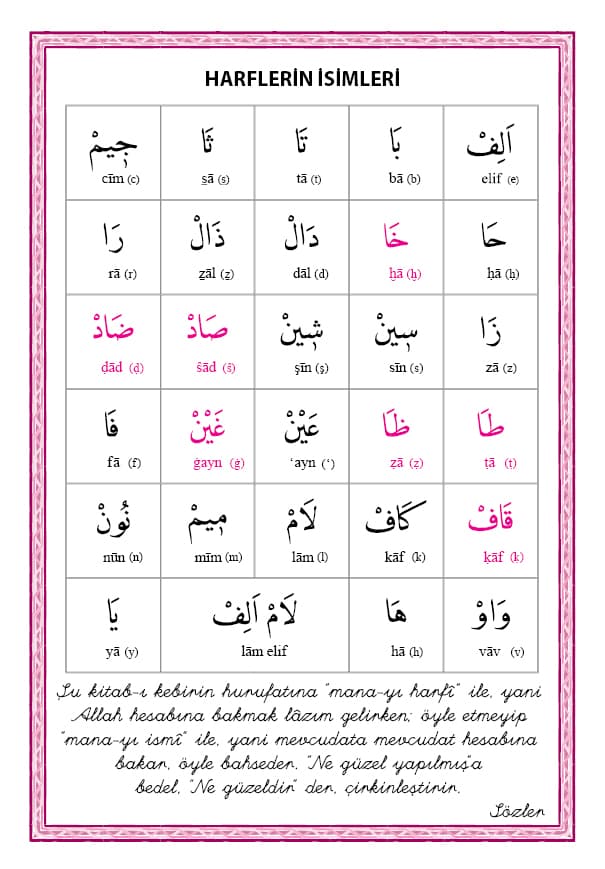 HARFLERİN İSİMLERİ
اَلِفْ بَا تَا ثَا جٖيمْ
elif (e) bā (b) tā (t) s̱ā (s̱) cīm (c)
حَا خَا دَالْ ذَالْ رَا
ḥā (ḥ) ḫā (ḫ) dāl (d) ẕāl (ẕ) rā (r)
زَا سٖينْ شٖينْ صَادْ ضَادْ
zā (z) sīn (s) şīn (ş) ŝād (ŝ) ḍād (ḍ)
طَا ظَا عَيْنْ غَيْنْ فَا
ṭā (ṭ) ẓā (ẓ) ‘ayn (‘) ġayn (ġ) fā (f)
قَافْ كَافْ لَامْ مٖيمْ نُونْ
ḳāf (ḳ) kāf (k) lām (l) mīm (m) nūn (n)
وَاوْ هَا لَامْ اَلِفْ يَا
vāv (v) hā (h) lām elif yā (y)
Şu kitab-ı kebirin hurufatına "mana-yı harfî" ile, yani
Allah hesabına bakmak lâzım gelirken; öyle etmeyip
"mana-yı ismî" ile, yani mevcudata mevcudat hesabına
bakar, öyle bahseder. "Ne güzel yapılmış"a
bedel, "Ne güzeldir" der, çirkinleştirir.
Sözler